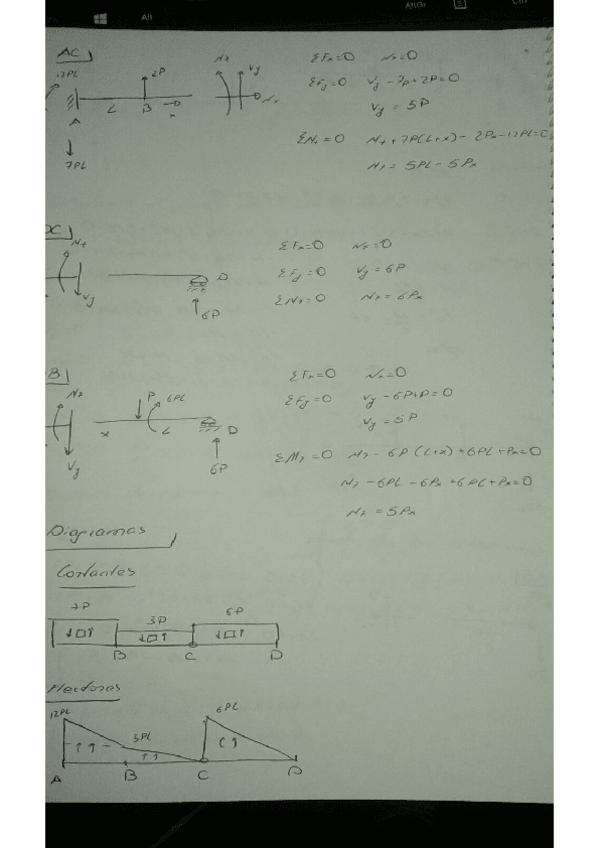 Alt
AltGr
AC
12PL
2P
Mz
Vy
Nx
A
L
B
x
7PL
ΣFx=0 Nx=0
ΣFy=0 Vy-7P+2P=0
Vy=5P
ΣMz=0 Mz+7P(L+x)-2Px-12PL=0
Mz=5PL-5Px
DC
Mz
Vy
D
6P
ΣFx=0 Nx=0
ΣFy=0 Vy=6P
ΣMz=0 Mz=6Px
B
Mz
P
6PL
x
L
D
Vy
6P
ΣFx=0 Nx=0
ΣFy=0 Vy-6P+P=0
Vy=5P
ΣMz=0 Mz-6P(L+x)+6PL+Px=0
Mz-6PL-6Px+6PL+Px=0
Mz=5Px
Diagramas
Cortantes
7P
3P
6P
B
C
D
Flectores
12PL
6PL
A
B
C
D